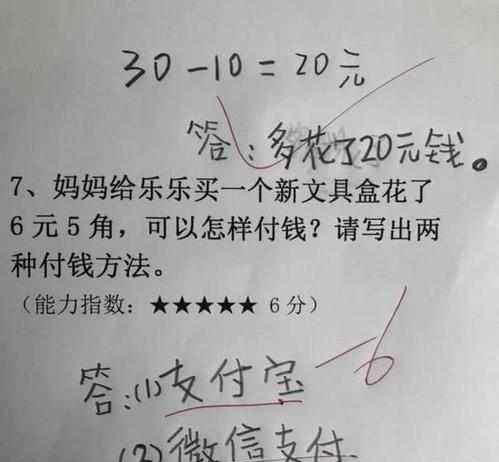 30-10=20元
答:多花了20元钱。
7、妈妈给乐乐买一个新文具盒花了
6元5角，可以怎样付钱？请写出两
种付钱方法。
（能力指数：★★★★★ 6分）
答:(1)支付宝 -6
(2)微信支付